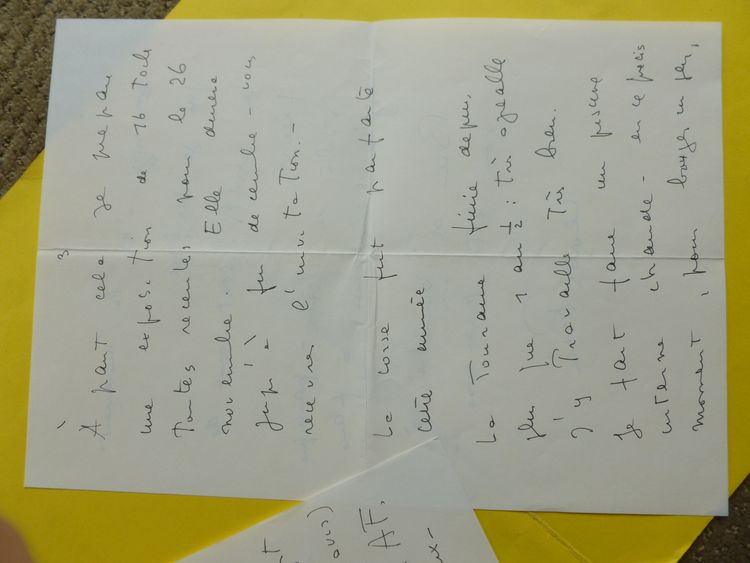 3
À part cela je prépare
une exposition de 16 toiles
Toutes recentes pour le 26
novembre. Elle durera
jusqu'à fin décembre - vous
recevrez l'invitation. -
La Corse fut parfaite
cette année
La Touraine finie depuis
plus que 1 an ½ : très agréable
J'y Travaille Très bien.
Je fait faire un piscine
interne chaude - en ce précis
moment, pour bouger un peu,
AF,
ux-